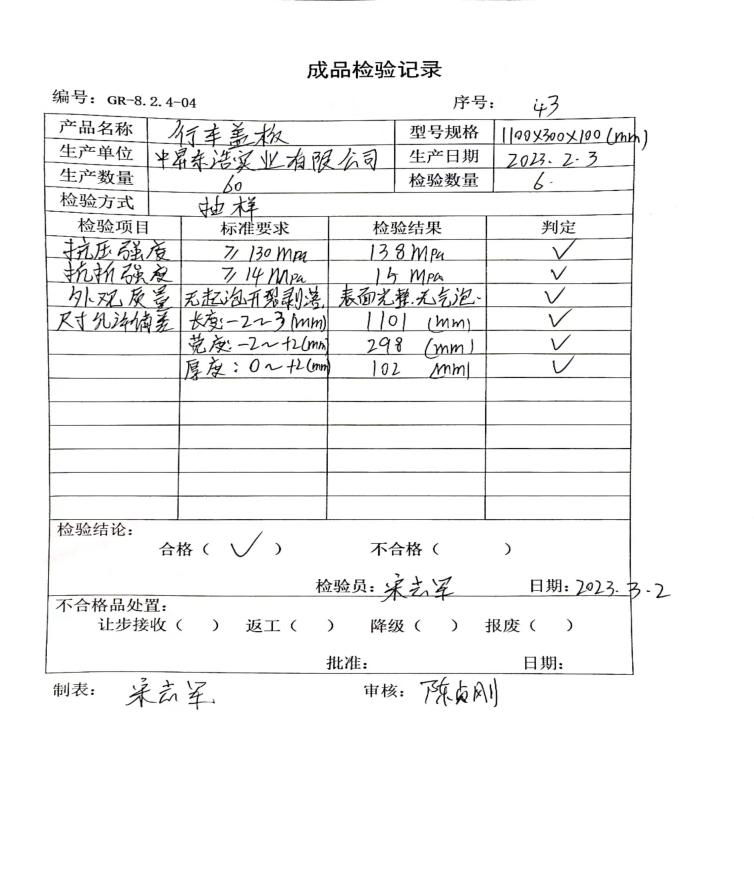 成品检验记录
编号: GR-8.2.4-04 序号: 43
产品名称 行车盖板 型号规格 1100X300X100(mm)
生产单位 中昇东浩实业有限公司 生产日期 2023.2.3
生产数量 60 检验数量 6.
检验方式 抽样
检验项目 标准要求 检验结果 判定
抗压强度 ≥130MPa 138MPa ✓
抗折强度 ≥14MPa 15MPa ✓
外观质量 无起泡开裂剥落. 表面光整.无气泡. ✓
尺寸允许偏差 长度:-2~3(mm) 1101 (mm) ✓
宽度:-2~+2(mm) 298 (mm) ✓
厚度:0~+2(mm) 102 (mm) ✓
检验结论:
合格( ✓ ) 不合格( )
检验员: 宋志军 日期: 2023.3.2
不合格品处置:
让步接收( ) 返工( ) 降级( ) 报废( )
批准: 日期:
制表: 宋志军 审核: 陈贞刚